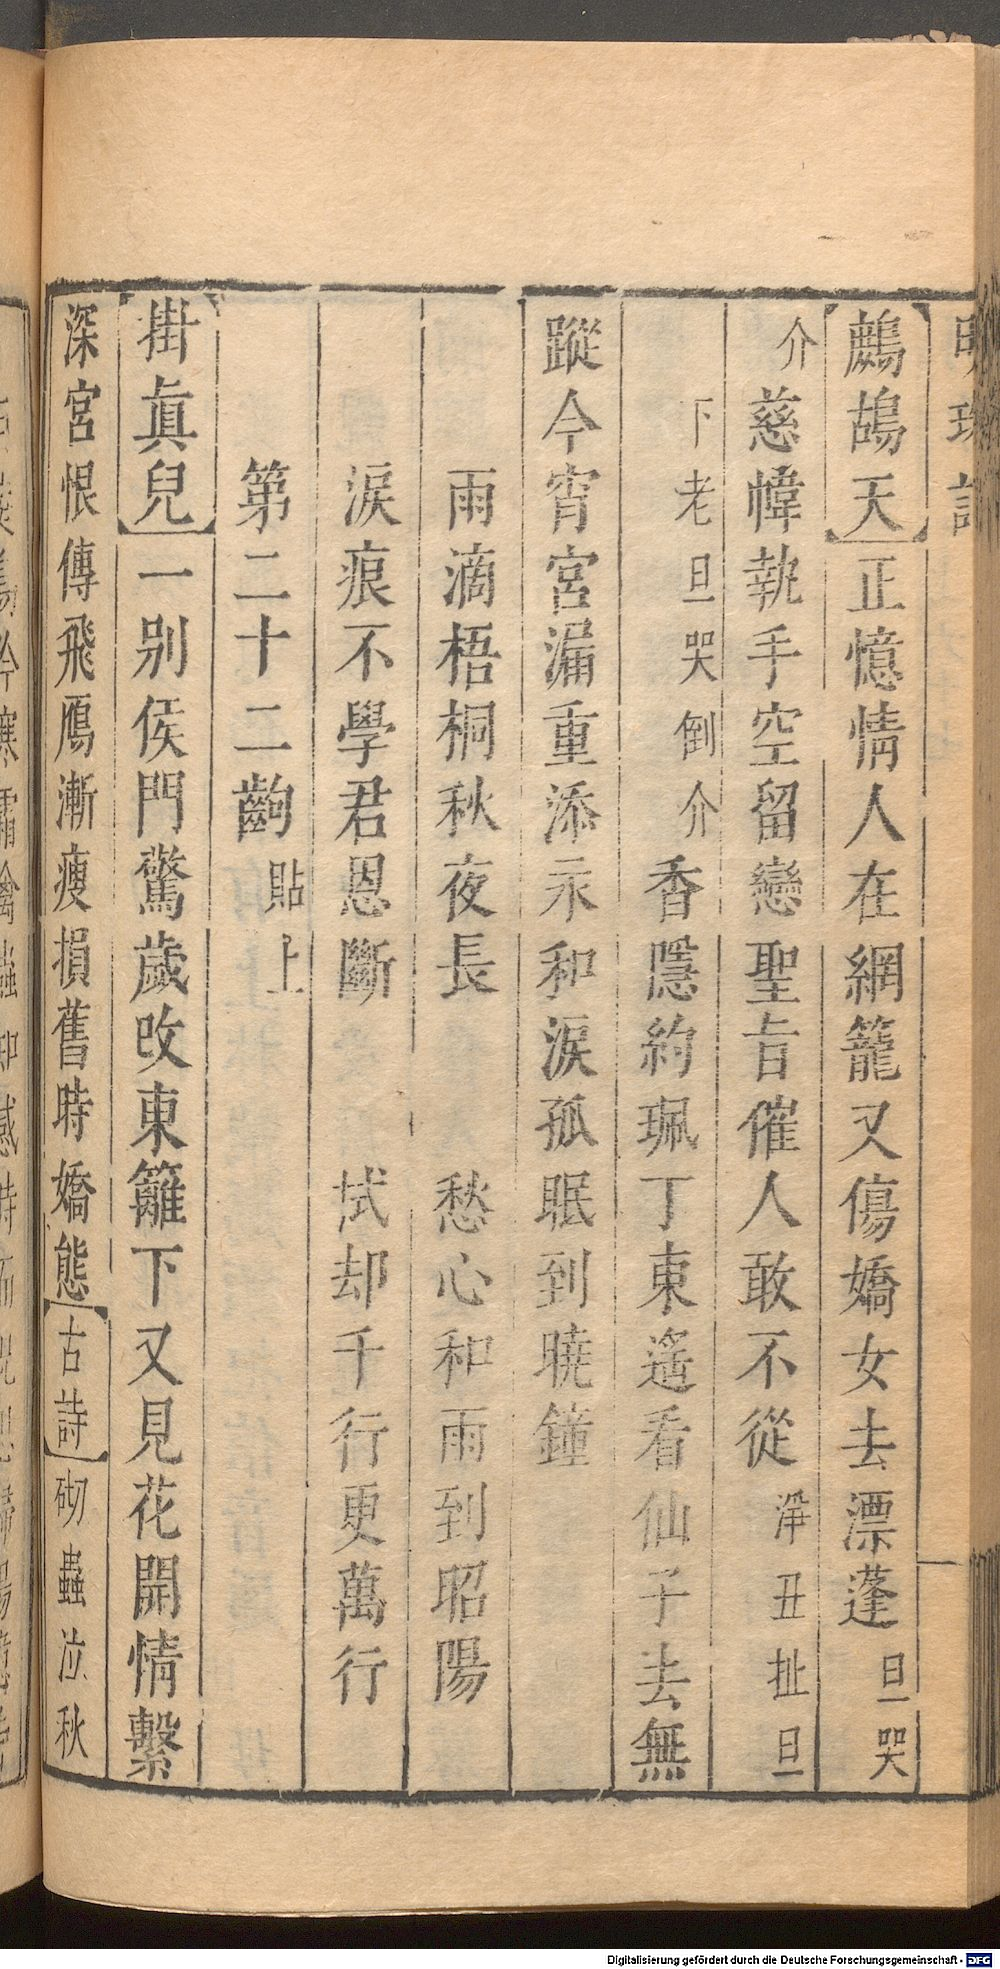 明珠記
【鷓鴣天】正憶情人在網籠又傷嬌女去漂蓬旦哭
介慈幃執手空留戀聖旨催人敢不從淨丑扯旦
下老旦哭倒介香隱約珮丁東遙看仙子去無
蹤今宵宮漏重添永和淚孤眠到曉鐘
雨滴梧桐秋夜長　愁心和雨到昭陽
淚痕不學君恩斷　拭却千行更萬行
第二十二齣貼上
【掛眞兒】一别侯門驚歲改東籬下又見花開情繫
深宮恨傳飛鴈漸瘦損舊時嬌態【古詩】砌蟲泣秋
Digitalisierung gefördert durch die Deutsche Forschungsgemeinschaft - DFG